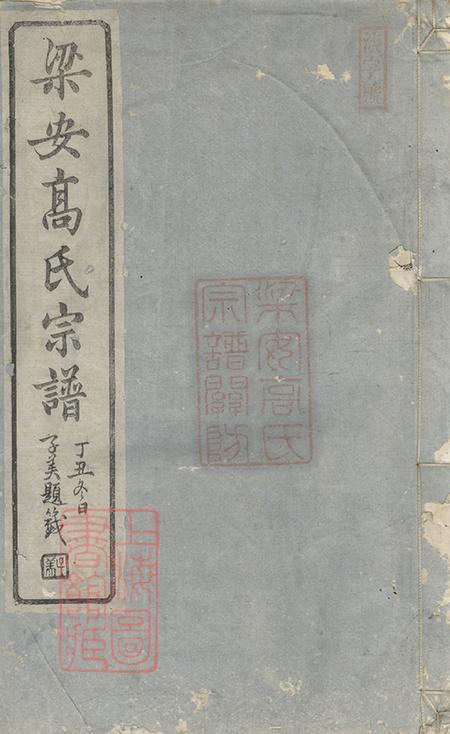 梁安高氏宗譜
丁丑冬日
子美題籤
梁安高氏
宗譜關防
上海圖
書館藏